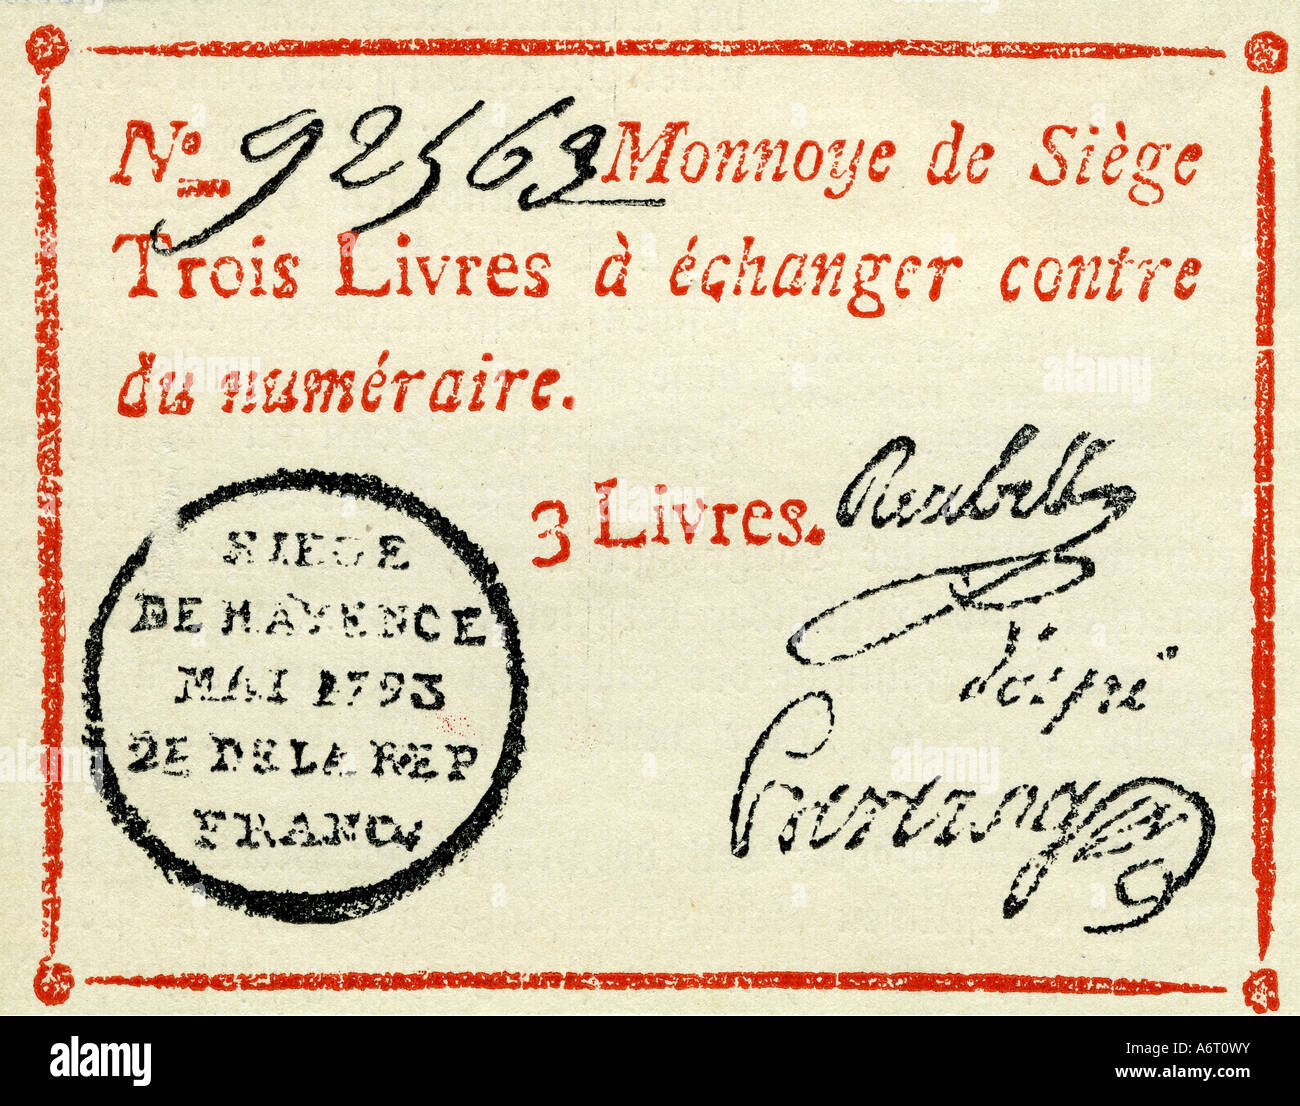 No. 92563 Monnoye de Siège
Trois Livres à échanger contre
du numéraire.
3 Livres. Reubell
SIEGE
DE MAYENCE
MAI 1793
2E DE LA REP
FRANC
alamy
Image ID: A6T0WY
www.alamy.com